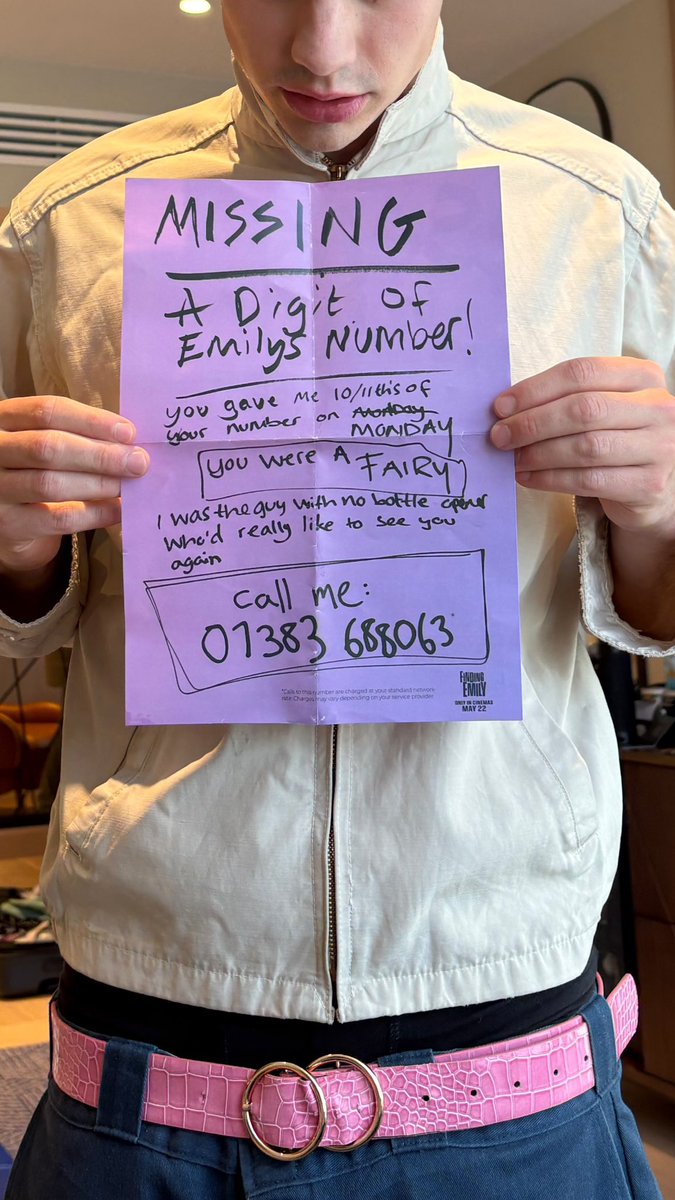 MISSING
A Digit OF
Emilys Number!
you gave me 10/11ths of
your number on Monday
MONDAY
you were A FAIRY
I was the guy with no bottle opener
who'd really like to see you
again
Call me:
07383 688063
*Calls to this number are charged at your standard network
rate. Charges may vary depending on your service provider.
FINDING
EMILY
ONLY IN CINEMAS
MAY 22